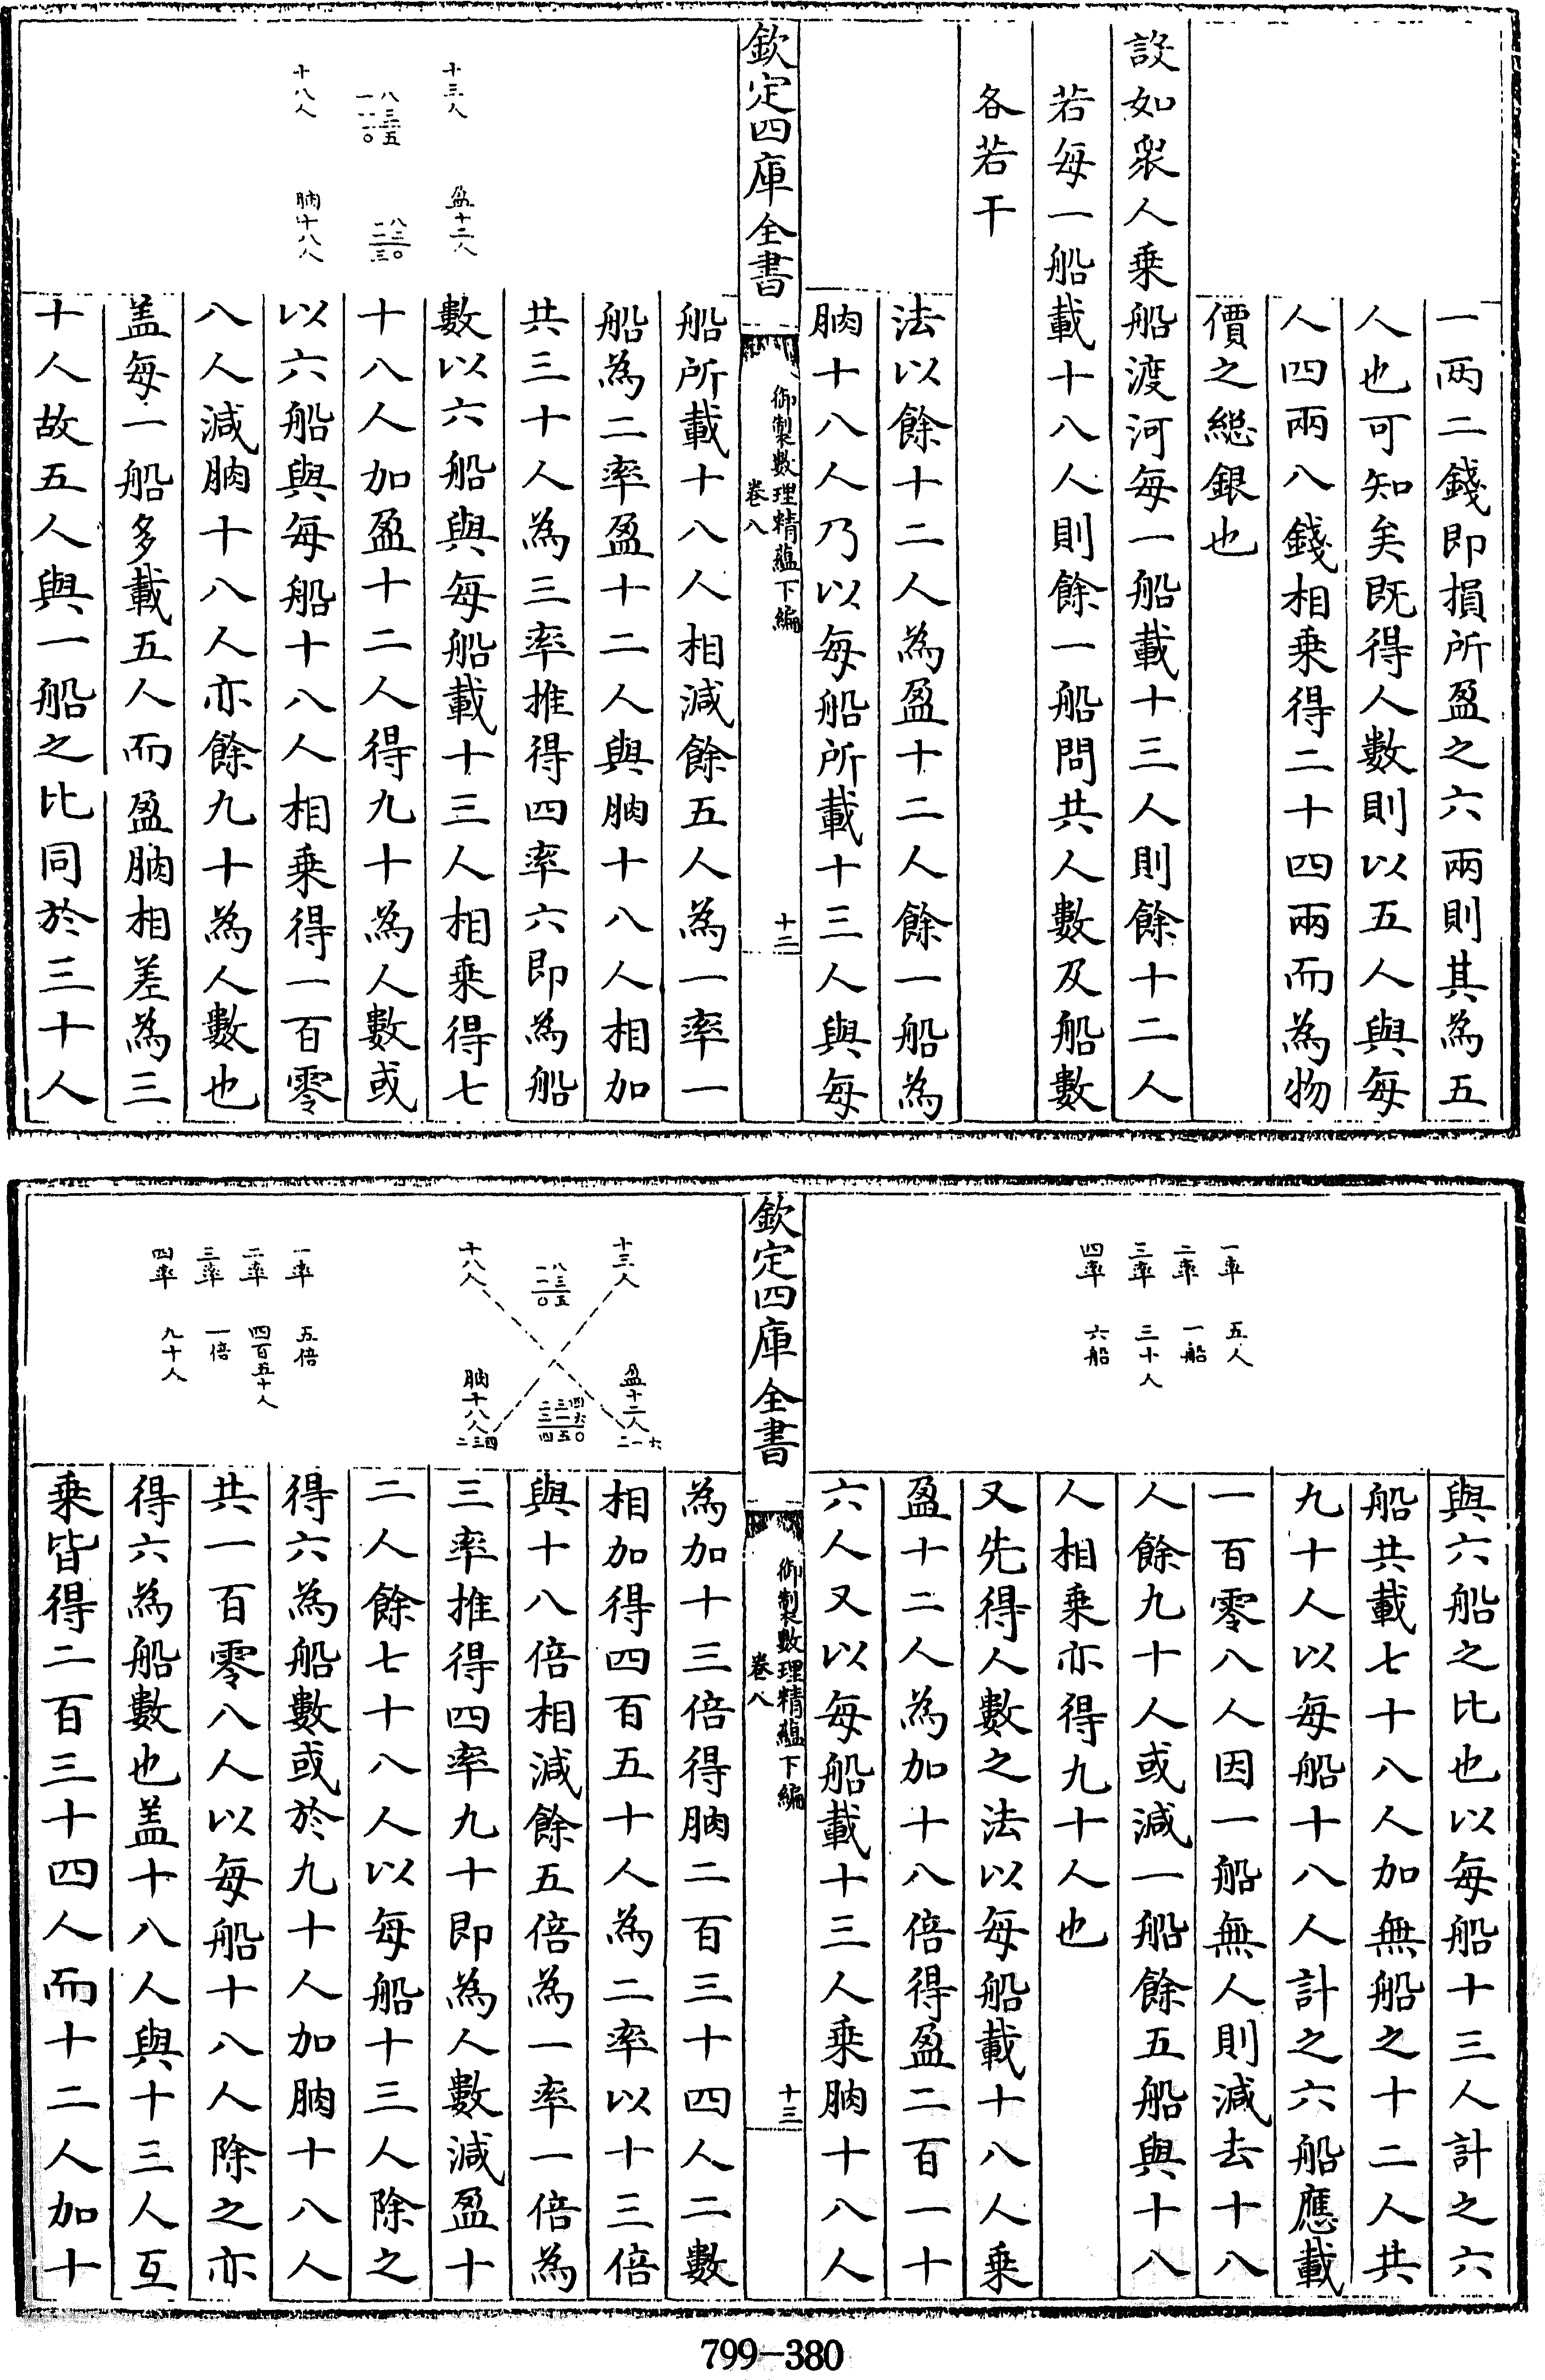 一两二錢即損所盈之六兩則其為五
人也可知矣既得人數則以五人與每
人四兩八錢相乗得二十四兩而為物
價之総銀也
設如衆人乗船渡河每一船載十三人則餘十二人
若每一船載十八人則餘一船問共人數及船數
各若干
法以餘十二人為盈十二人餘一船為
朒十八人乃以每船所載十三人與每
欽定四庫全書
御製數理精蘊下編
卷八
十二
十三人
盈十二人
八三五
一一〇
八三〇
一二三
十八人
朒十八人
船所載十八人相減餘五人為一率一
船為二率盈十二人與朒十八人相加
共三十人為三率推得四率六即為船
數以六船與每船載十三人相乗得七
十八人加盈十二人得九十為人數或
以六船與每船十八人相乗得一百零
八人減朒十八人亦餘九十為人數也
盖每一船多載五人而盈朒相差為三
十人故五人與一船之比同於三十人
一率 五人
二率 一船
三率 三十人
四率 六船
與六船之比也以每船十三人計之六
船共載七十八人加無船之十二人共
九十人以每船十八人計之六船應載
一百零八人因一船無人則減去十八
人餘九十人或減一船餘五船與十八
人相乗亦得九十人也
又先得人數之法以每船載十八人乗
盈十二人為加十八倍得盈二百一十
六人又以每船載十三人乗朒十八人
欽定四庫全書
御製數理精蘊下編
卷八
十三
十三人
盈十二人
二一六
八三五
一一〇
四六〇
三一五
二三四
十八人
朒十八人
二三四
一率 五倍
二率 四百五十人
三率 一倍
四率 九十人
為加十三倍得朒二百三十四人二數
相加得四百五十人為二率以十三倍
與十八倍相減餘五倍為一率一倍為
三率推得四率九十即為人數減盈十
二人餘七十八人以每船十三人除之
得六為船數或於九十人加朒十八人
共一百零八人以每船十八人除之亦
得六為船數也盖十八人與十三人互
乗皆得二百三十四人而十二人加十
799-380